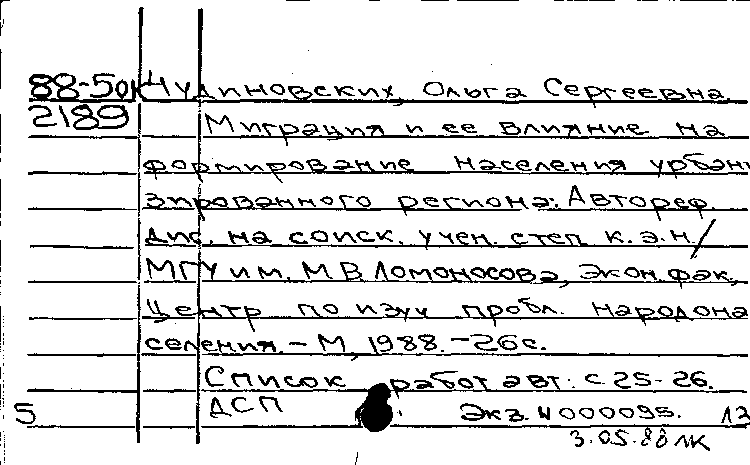 88-50к Чудиновских, Ольга Сергеевна
2189 Миграция и ее влияние на
формирование населения урбани
зированного региона: Автореф.
дис. на соиск. учен. степ. к.э.н/
МГУ им. М.В. Ломоносова, Экон. фак.,
Центр по изуч. пробл. народона
селения. - М, 1988. - 26с.
Список работ авт.: с 25-26.
5 ДСП Экз. N 000095. 13
3.05.88